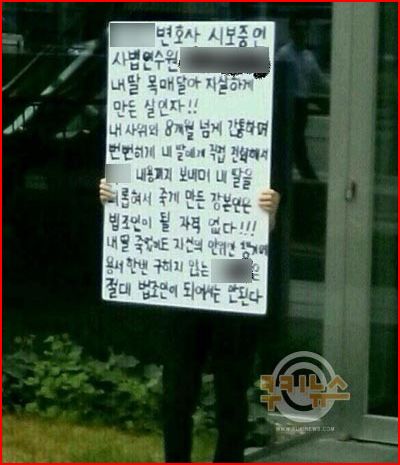 변호사 시보중인
사법연수원
내딸 목매달아 자살하게
만든 살인자!!
내 사위와 8개월 넘게 간통하며
뻔뻔하게 내 딸에게 직접 전화해서
내용까지 보내며 내 딸을
괴롭혀서 죽게 만든 장본인은
법조인이 될 자격 없다!!!
내딸 죽음에도 자신의 안위만 챙기며
용서한번 구하지 않는 은
절대 법조인이 되어서는 안된다
쿠키뉴스
WWW.KUKINEWS.COM